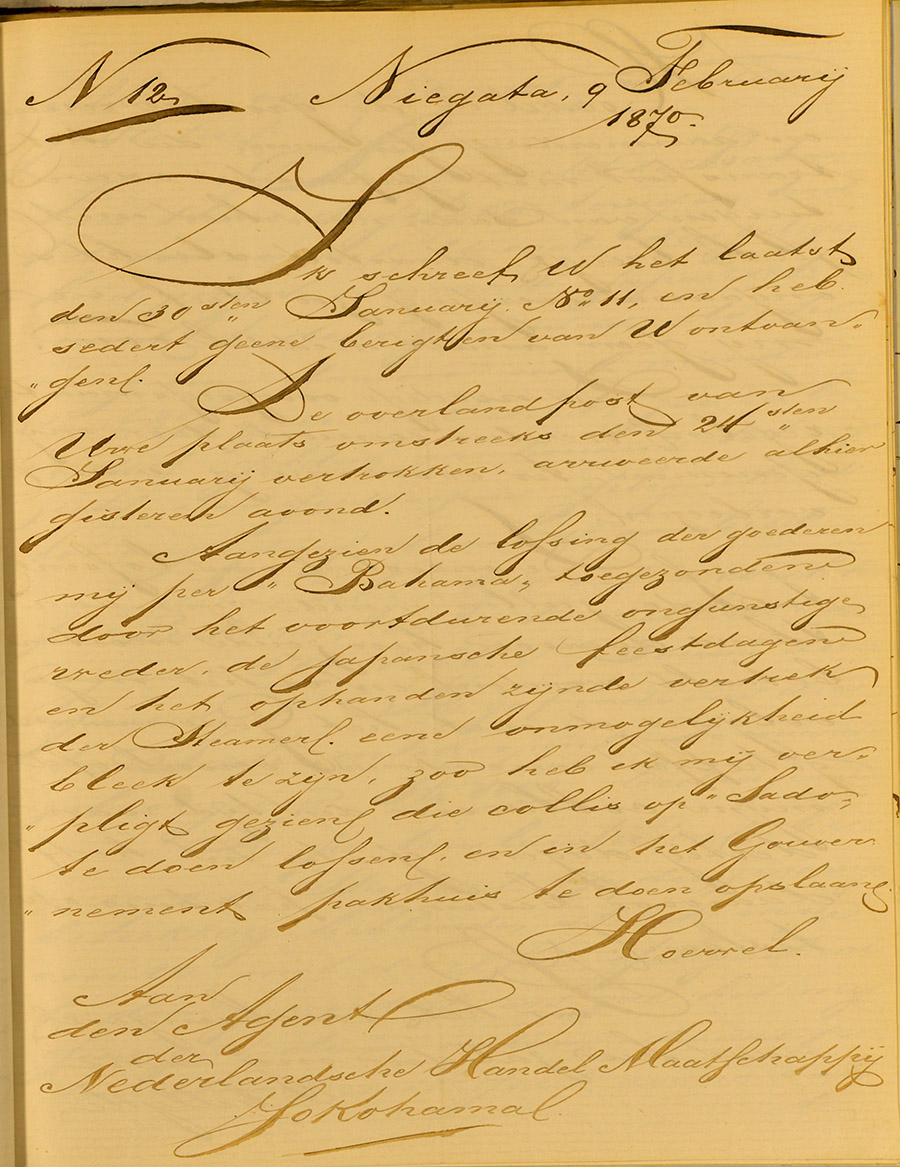 N 12
Niegata, 9 Februarij
1870.
Ik schreef U het laatst
den 30sten Januarij No 11, en heb
sedert geene berigten van U ontvan„
„gen.
De overlandpost van
Uwe plaats omstreeks den 24sten
Januarij vertrokken, arriveerde alhier
gisteren avond.
Aangezien de lossing der goederen
mij per „Bahama„ toegezonden
door het voortdurende ongunstige
weder, de japansche feestdagen
en het ophanden zijnde vertrek
der Steamer. eene onmogelijkheid
bleek te zijn, zoo heb ik mij ver„
„pligt gezien die collis op „Sado„
te doen lossen, en in het Gouver
„nement pakhuis te doen opslaan.
Hoewel.
Aan
den Agent
der
Nederlandsche Handel Maatschappij
Jokohama.